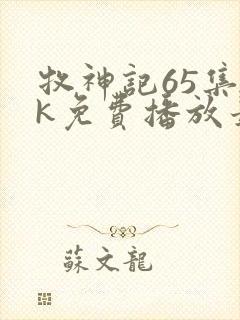 牧神記65集
K免費播放
蘇文龍